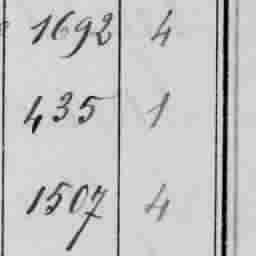 1692 4
435 1
1507 4